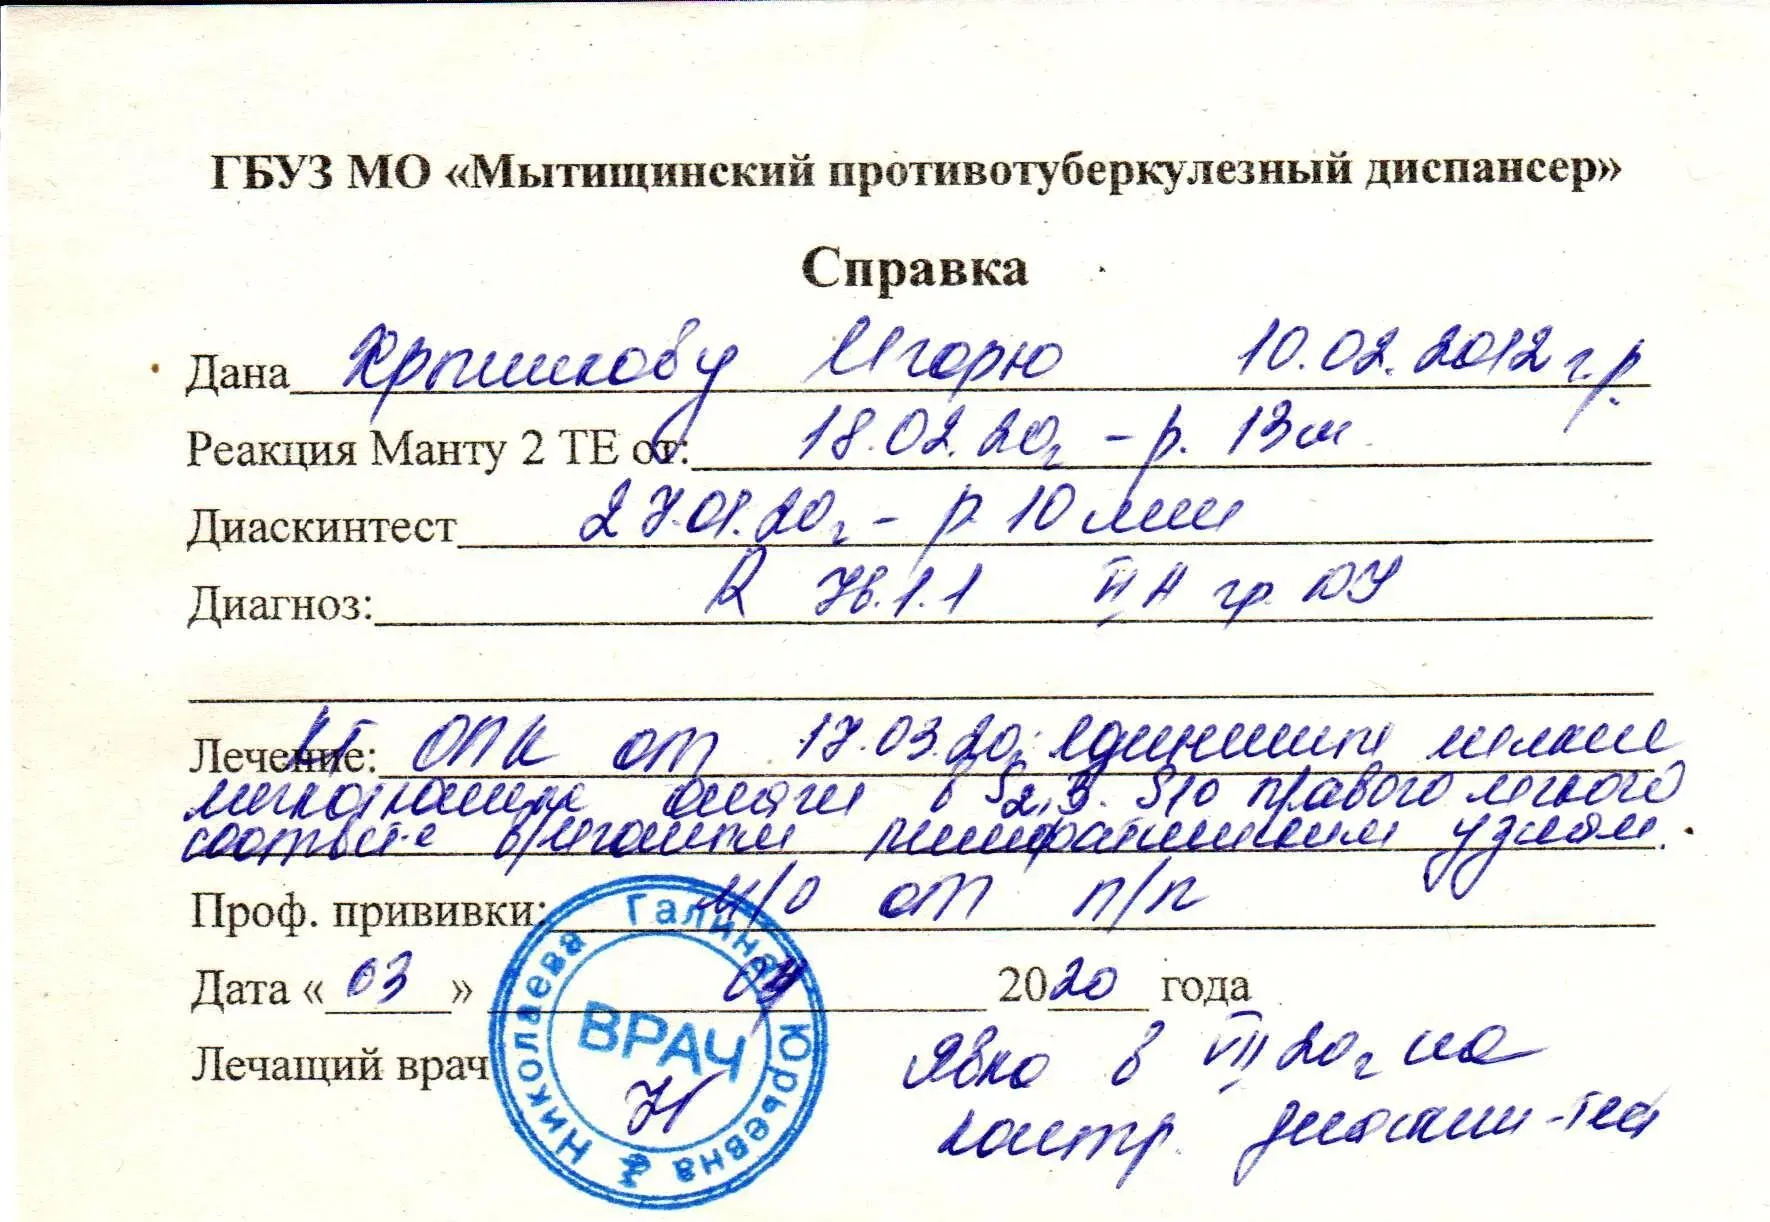 ГБУЗ МО «Мытищинский противотуберкулезный диспансер»
Справка
Дана Крышкову Игорю 10.02.2012 г.р
Реакция Манту 2 ТЕ от: 18.02.20г – р. 13м
Диаскинтест 27.01.20г – р 10 мм
Диагноз: R 76.1.1 гр ДУ
Лечение: КТ ОГК от 17.03.20г единичные мелкие
легкого очаги в S2,3. S10 правого легкого
соответ-е внутрилегочным лимфатическим узлам.
Проф. прививки: м/о от п/п
Дата « 03 » 04 2020 года
Лечащий врач
Николаева Галина Юрьевна
ВРАЧ
Явка в VII 20г на
контр. диаскин-тест